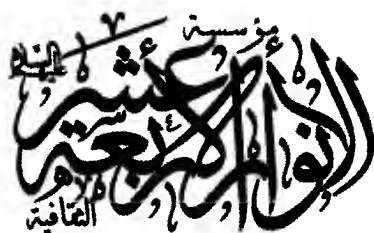 مؤسسة
الأنوار الأربعة عشر
الثقافية